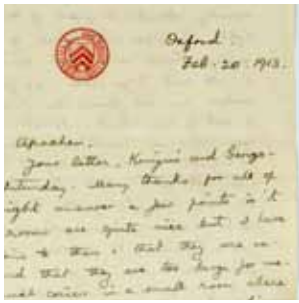 Oxford.
Feb. 20. 1913.
Apachan.
Your letter, Kunjus' and George
Saturday. Many thanks for all of
ight answer a few points in it
rooms are quite nice but I have
ain to them; that they are in
nd that they are too large for me.
ual corner in a small room where